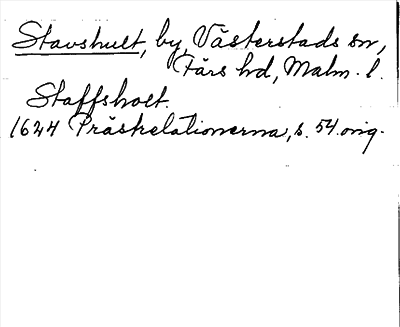 Stavshult, by, Västerstads sn,
Färs hd, Malm. l.
Staffsholt.
1624 Präsrelationerna, s. 54. orig.